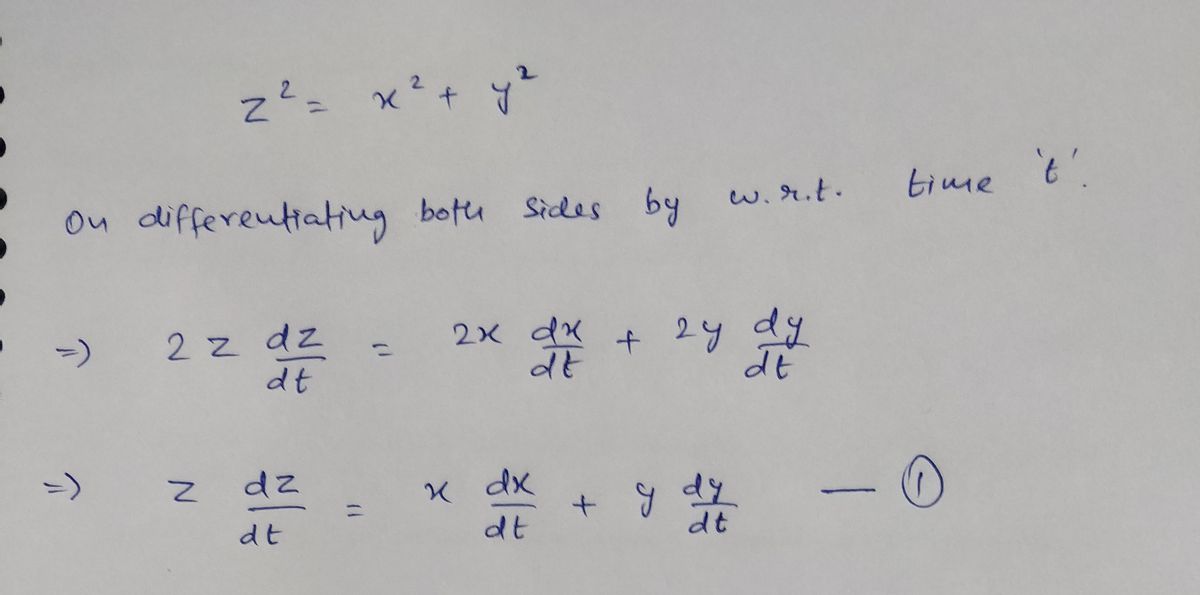 z² = x² + y²
On differentiating both sides by w.r.t. time 't'.
=) 2z dz/dt = 2x dx/dt + 2y dy/dt
=) z dz/dt = x dx/dt + y dy/dt — ①